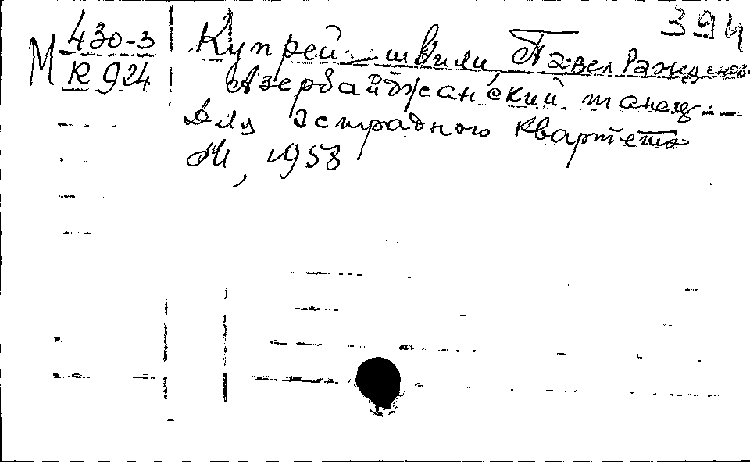 394
М 430-3
К 924
Купрейшвили, Павел
Азербайджанский танец.—
Для эстрадного квартета
М, 1958